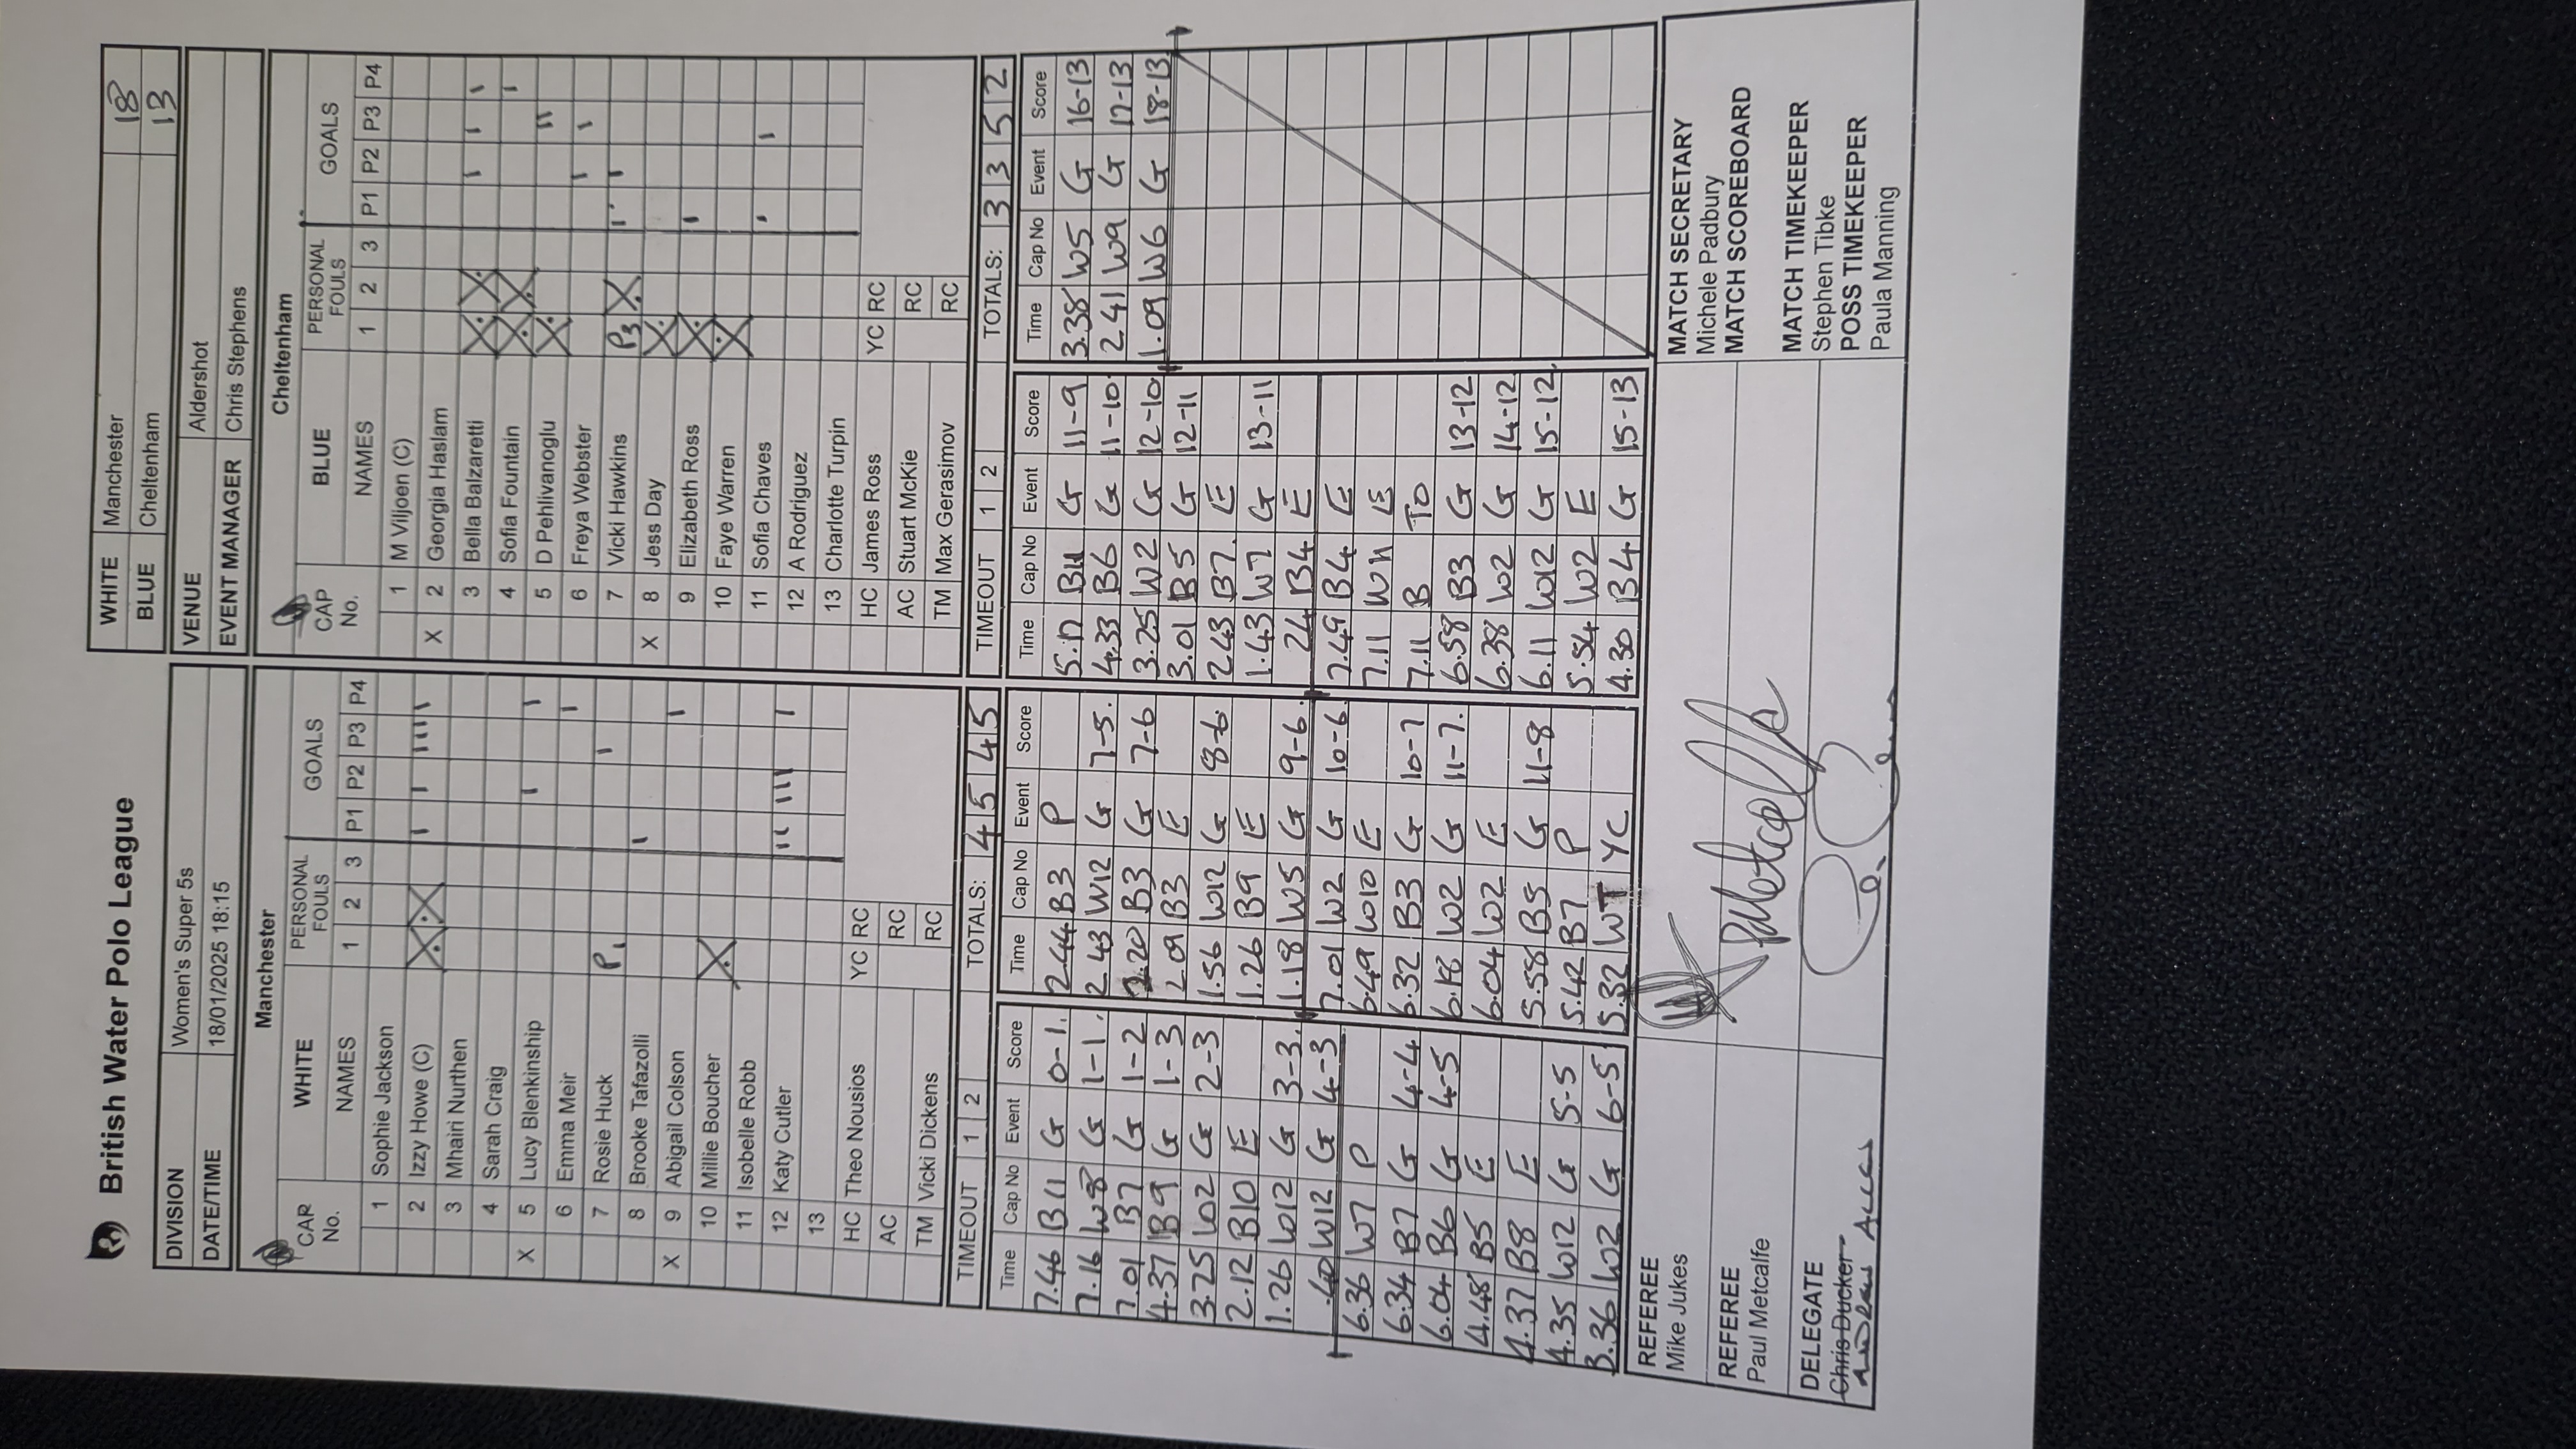 British Water Polo League
DIVISION Women's Super 5s
DATE/TIME 18/01/2025 18:15
WHITE Manchester 18
BLUE Cheltenham 13
VENUE Aldershot
EVENT MANAGER Chris Stephens
Manchester
CAP No. WHITE NAMES PERSONAL FOULS 1 2 3 GOALS P1 P2 P3 P4
1 Sophie Jackson
2 Izzy Howe (C)
3 Mhairi Nurthen
4 Sarah Craig
X 5 Lucy Blenkinship
6 Emma Meir
7 Rosie Huck P1
8 Brooke Tafazolli
X 9 Abigail Colson
10 Millie Boucher
11 Isobelle Robb
12 Katy Cutler
13
HC Theo Nousios YC RC
AC RC
TM Vicki Dickens RC
TIMEOUT 1 2 TOTALS: 4 5 4 5
Cheltenham
CAP No. BLUE NAMES PERSONAL FOULS 1 2 3 GOALS P1 P2 P3 P4
1 M Viljoen (C)
X 2 Georgia Haslam
3 Bella Balzaretti
4 Sofia Fountain
5 D Pehlivanoglu
6 Freya Webster
7 Vicki Hawkins P3
X 8 Jess Day
9 Elizabeth Ross
10 Faye Warren
11 Sofia Chaves
12 A Rodriguez
13 Charlotte Turpin
HC James Ross YC RC
AC Stuart McKie RC
TM Max Gerasimov RC
TIMEOUT 1 2 TOTALS: 3 3 5 2
Time Cap No Event Score
7.46 B11 G 0-1
7.16 W8 G 1-1
7.01 B7 G 1-2
4.37 B9 G 1-3
3.25 W2 G 2-3
2.12 B10 E
1.26 W12 G 3-3
.40 W12 G 4-3
6.36 W7 P
6.34 B7 G 4-4
6.04 B6 G 4-5
4.48 B5 E
4.37 B8 E
4.35 W12 G 5-5
3.36 W2 G 6-5
Time Cap No Event Score
2.44 B3 P
2.43 W12 G 7-5
2.20 B3 G 7-6
2.09 B3 E
1.56 W12 G 8-6
1.26 B9 E
1.18 W5 G 9-6
7.01 W2 G 10-6
6.49 W10 E
6.32 B3 G 10-7
6.18 W2 G 11-7
6.04 W2 E
5.58 B5 G 11-8
5.42 B7 P
5.32 WT YC
Time Cap No Event Score
5.17 B11 G 11-9
4.33 B6 G 11-10
3.25 W2 G 12-10
3.01 B5 G 12-11
2.43 B7 E
1.43 W7 G 13-11
24 B4 E
7.49 B4 E
7.11 W11 E
7.11 B TO
6.58 B3 G 13-12
6.38 W2 G 14-12
6.11 W12 G 15-12
5.54 W2 E
4.30 B4 G 15-13
Time Cap No Event Score
3.38 W5 G 16-13
2.41 W9 G 17-13
1.09 W6 G 18-13
REFEREE
Mike Jukes
REFEREE
Paul Metcalfe
DELEGATE
Chris Ducker
MATCH SECRETARY
Michele Padbury
MATCH SCOREBOARD
MATCH TIMEKEEPER
Stephen Tibke
POSS TIMEKEEPER
Paula Manning